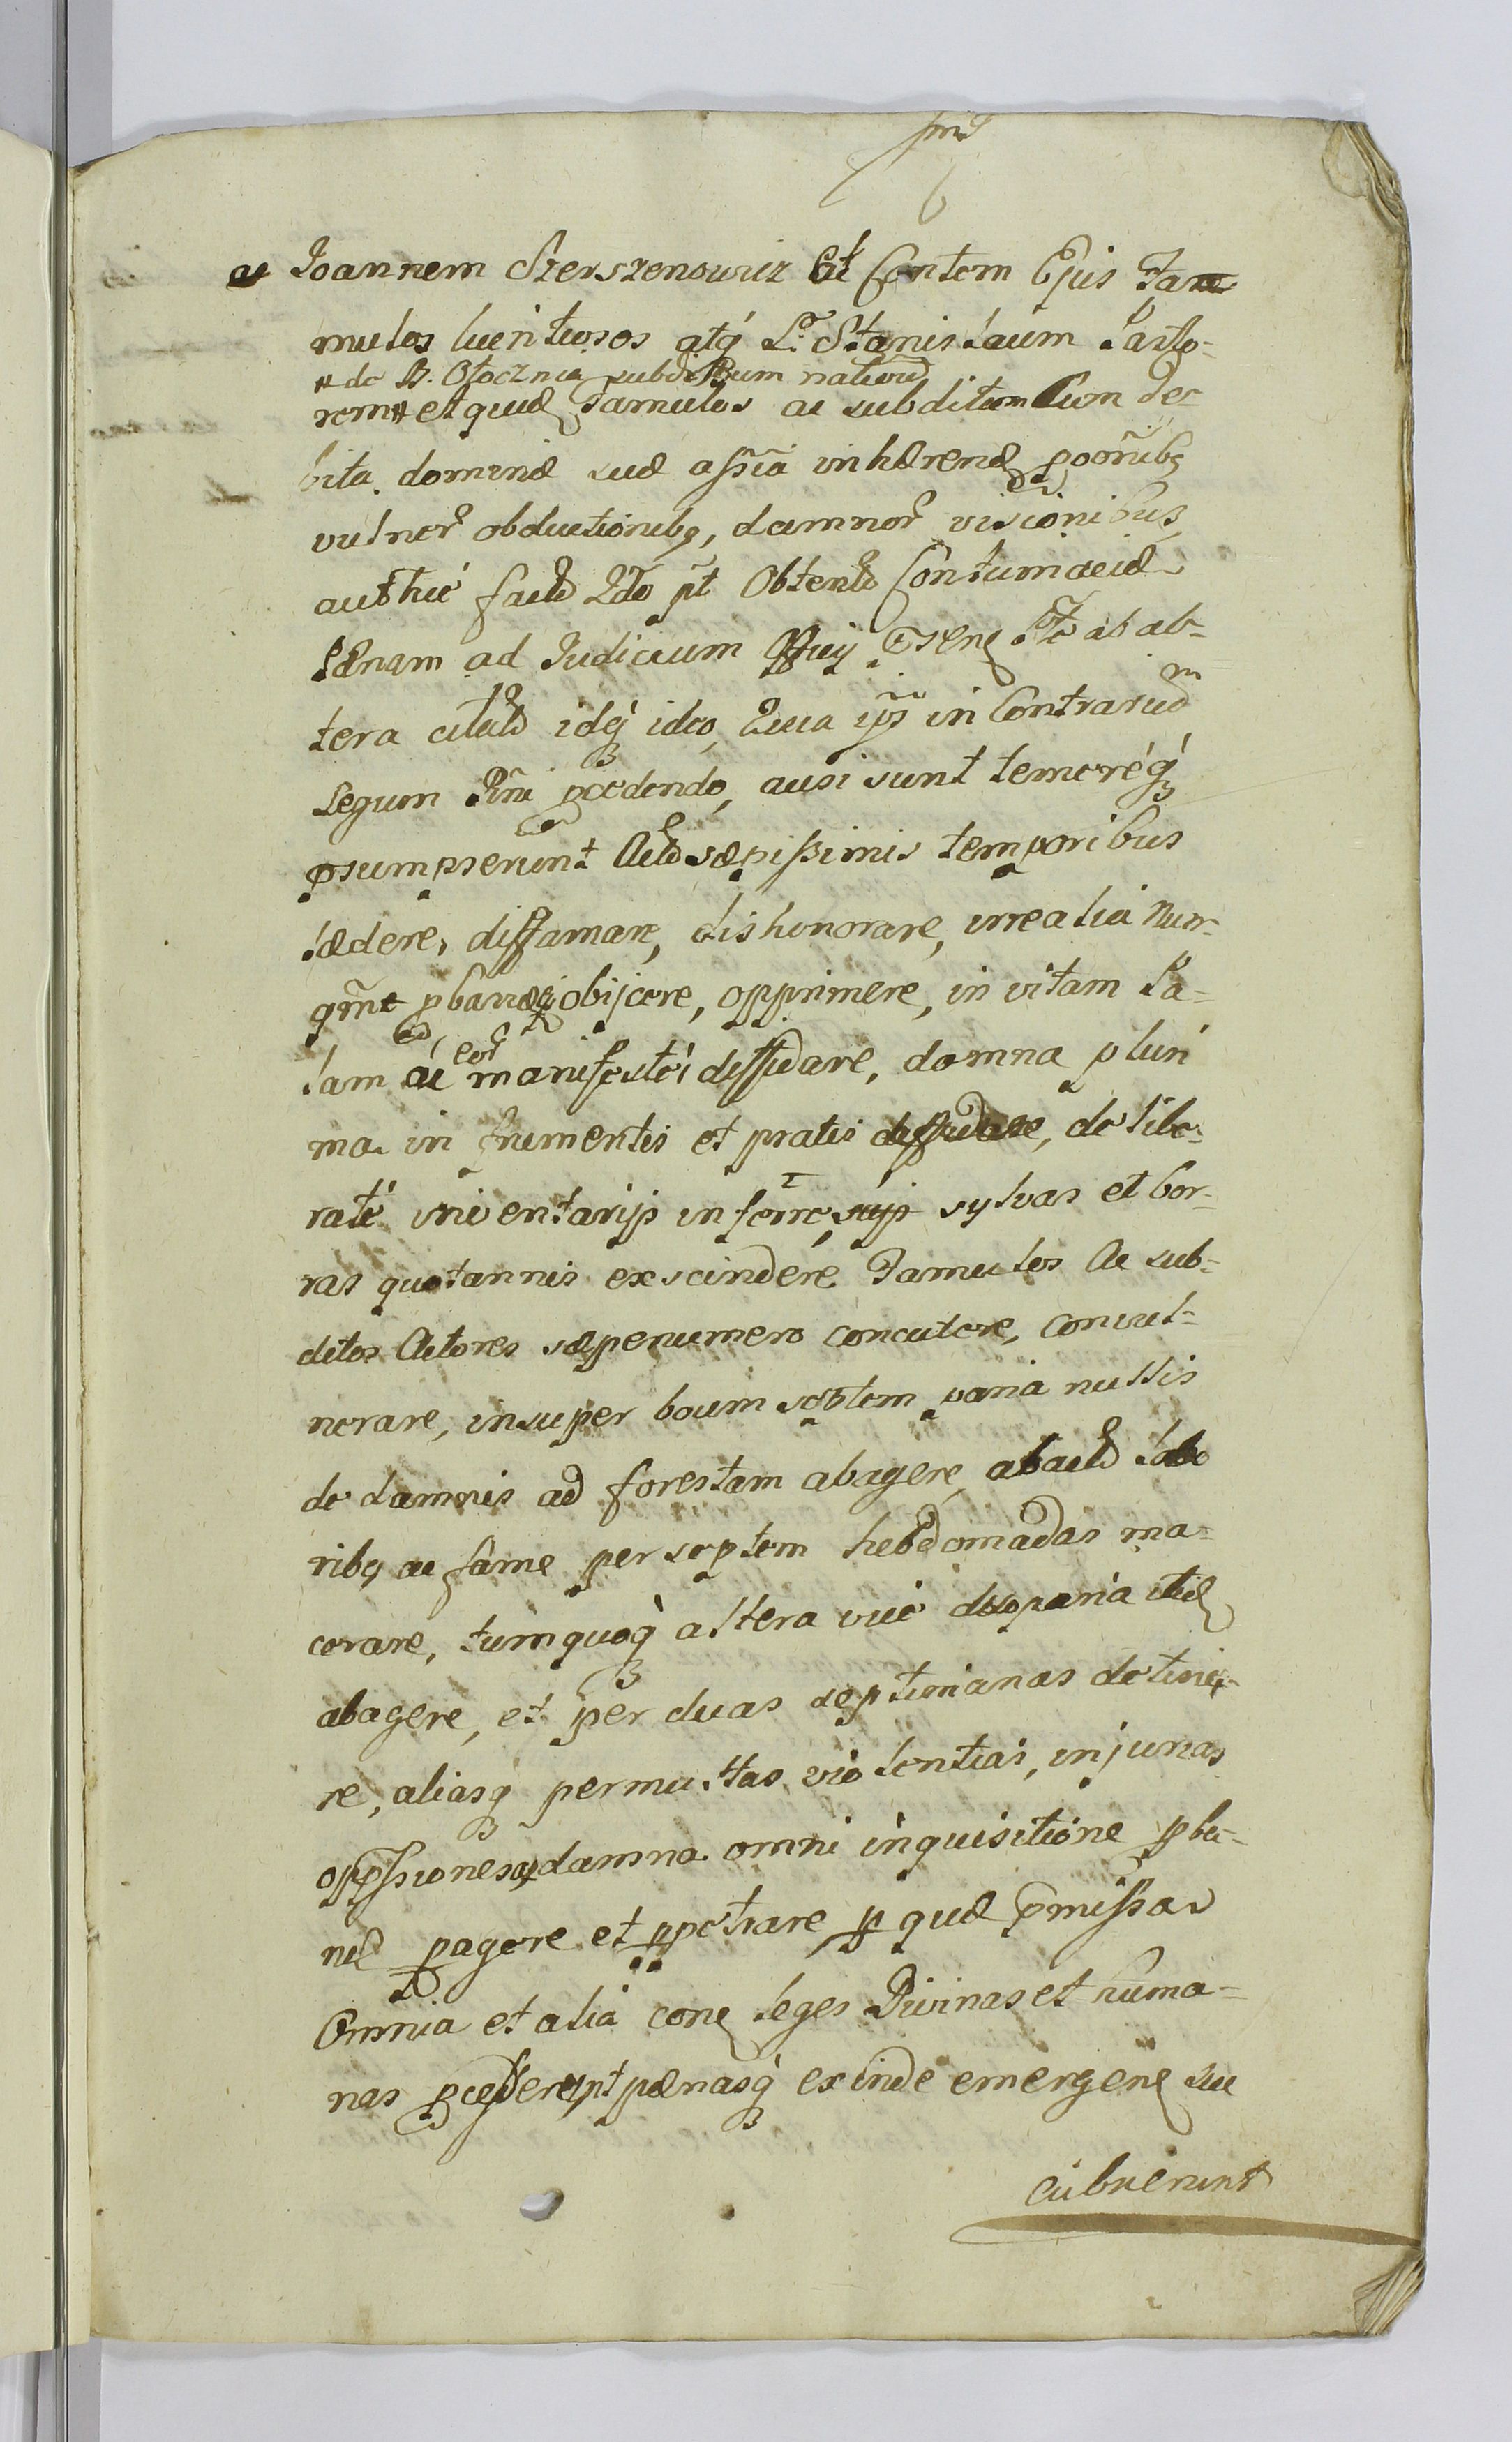 6
ac Joannem Szerszenowicz Contem Ejus Fa
mulos lucrituosos atq̃ L. Stanislaum Pasto-
# de B. Otocznia subditum nativũ
rem # et quidẽ Famulos ac subditum Cum de-
bita dominæ suæ assña inhærenđ
vulner obductionibq, damnor visionibus
authce factæ 2do pt Obtentæ Contumaciæ
Pænam ad Judicium Officij ab al-
tera citatæ idq́ ideo, Quia ipsi in Contrariũ
Legum Rñi pcedendo, ausi sunt temereq́
psumpserunt Act sæpissimis temporibus
lædere, diffamare, dishonorare, irrealia nun-
qm̃t pbavdaq objicere, opprimere, in vitam Pa-
lam ac manifeste diffidare, damna pluri
ma in frumentis et pratis de libe-
rate inferre, sylvas et bor-
ras quotannis exscindere Famulos Ac sub-
ditos Actores sæpenumero concutere, convul-
nerare, insuper boum septem paria nullis
de damnis ad forestam abagere, labo
ribq ac fame per septem hebdomadas ma-
cerare, tumquoq̀ altera vice duo paria itid
abagere, et per duas septimanas detine-
re, aliasq permultas violentias, injurias
oppssionesq damna omni inquisitione pba-
nd pagere et ppetrare p quæ pmissa
Omnia et alia cone leges Divinas et huma-
nas pcesserunt pænasq́ exinde emergenẽ suc
cubuerunt